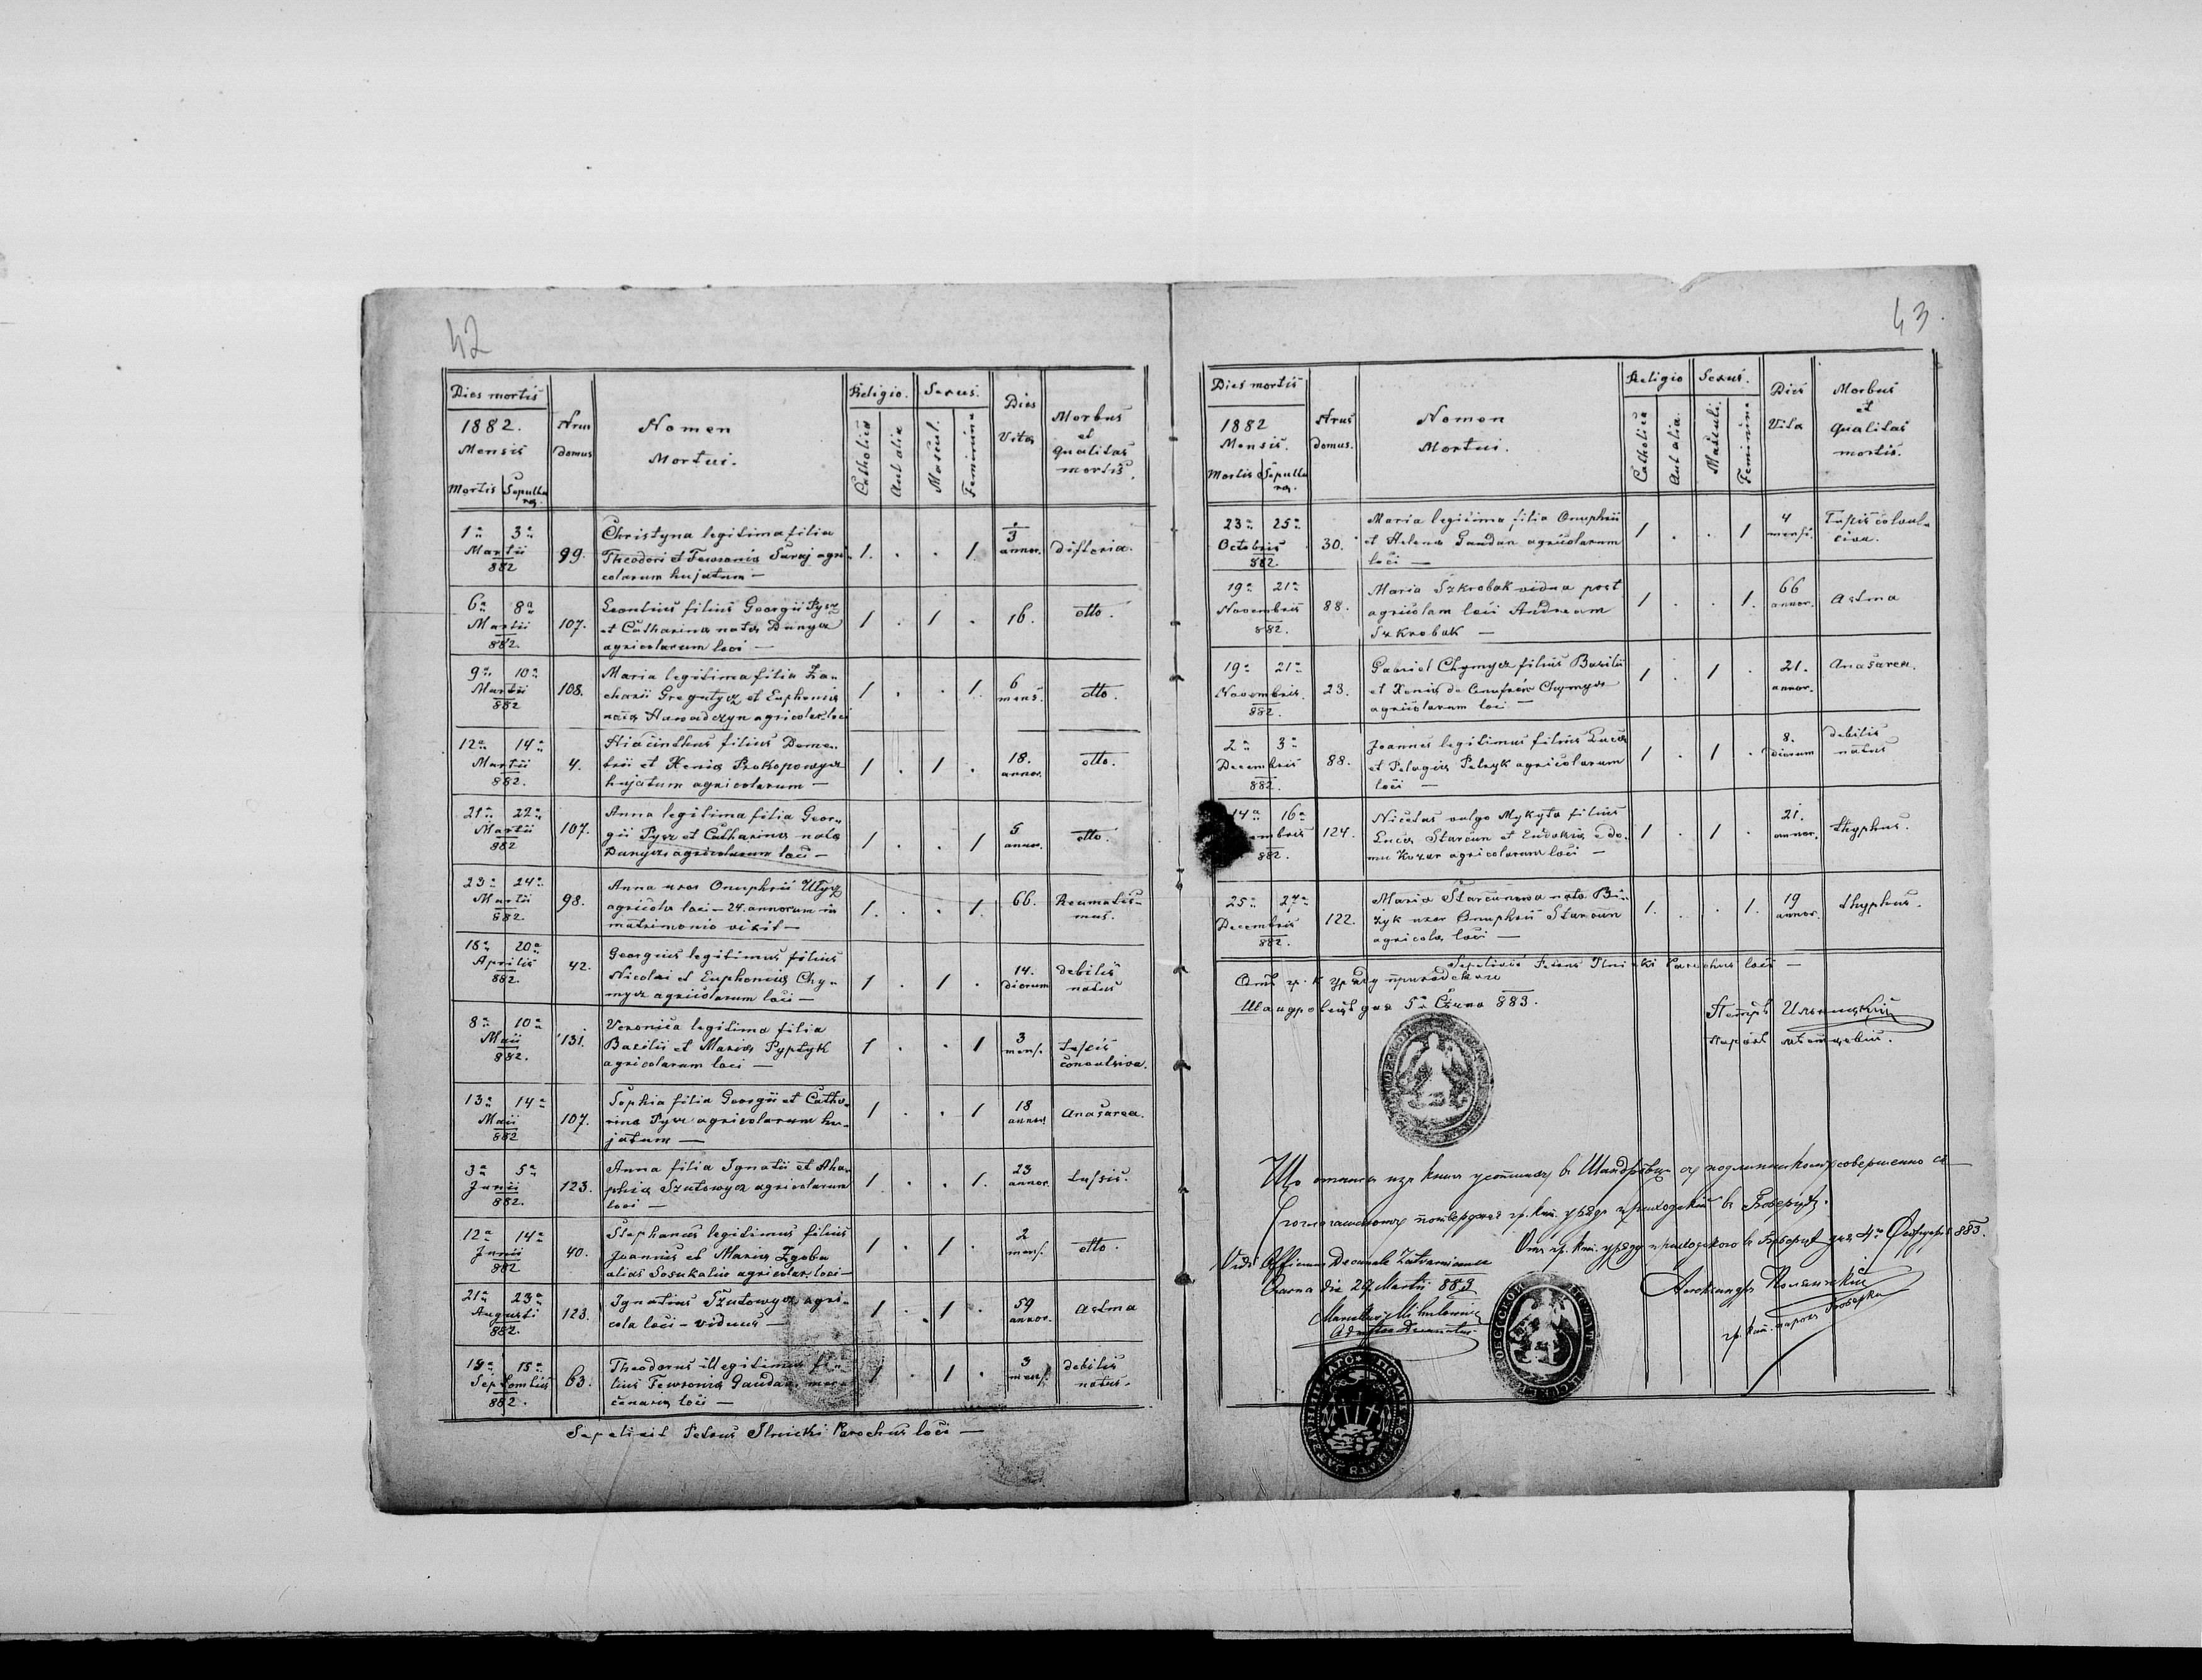 42
Dies mortis
1882.
Mensis
Mortis Sepultu
ræ.
Nrus
domus
Nomen
Mortui.
Religio.
Catholica
Aut alia
Sexus.
Mascul.
Feminina
Dies
Vitæ
Morbus
et
qualitas
mortis.
1a 3a
Martii
882
99.
Christyna legitima filia
Theodori et Fewronia Saraj agri-
colarum hujatum —
1. . . 1.
3
annor.
difteria.
6a 8a
Martii
882.
107.
Leontius filius Georgii Pysz
et Catharina nata Dunya
agricolarum loci —
1 . 1 .
16.
otto.
9a 10a
Martii
882
108.
Maria legitima filia Za-
charii Hregutycz et Euphemia
agricolar. loci
1 . . 1.
6
mens.
otto.
12a 14a
Martii
882.
4.
Hiacinthus filius Deme-
trii et Xenia Prokopowycz
hujatum agricolarum —
1 . 1 .
18.
annor.
otto.
21a 22a
Martii
882
107.
Anna legitima filia Geor-
gii Pysz et Catharina nata
Dunycz agricolarum loci —
1 . . 1
5
annor.
otto.
23a 24a
Martii
882
98.
Anna uxor Onuphrii
agricola loci – 24. annorum in
matrimonio vixit —
1. . . 1.
66.
Reumatis-
mus.
18a 20a
Aprilis
882.
42.
Georgius legitimus filius
Nicolai et Euphemia Chy-
mycz agricolarum loci —
1 . 1 .
14.
dierum
debilis
natus
8a 10a
Maii
882.
131.
Veronica legitima filia
Basilii et Maria Pyptyk
agricolarum loci —
1 . . 1
3
mens.
Tussis
convulsiva.
13a 14a
Maii
882
107.
Sophia filia Georgii et Catha-
rina Pysz agricolarum hu-
jatum —
1 . . 1
18
annor.
Anasarca.
3a 5a
Junii
882.
123.
Anna filia Ignatii et Aha-
phia Szutowycz agricolarum
loci —
1 . . 1.
23
annor.
tussis.
12a 14a
Junii
882
40.
Stephanus legitimus filius
Joannis et Maria Zgoba
alias agricolar. loci —
1 . 1 .
2
mens.
otto.
21a 23a
Augusti
882.
123.
Ignatius Szutowycz agri-
cola loci – viduus —
1 . 1 .
59
annor.
astma
15a
Septembris
882.
63.
Theodorus illegitimus fi-
lius Fewronia Gaudan mer-
cenaria loci —
1 . 1 .
3
mens.
debilis
natus.
Sepelivit Petrus Ilnicki Parochus loci —
43.
Dies mortis
1882
Mensis.
Mortis Sepultu
ræ.
Nrus
domus.
Nomen
Mortui.
Religio
Catholica
Aut alia.
Sexus.
Masculi.
Feminina
Dies
Vita
Morbus
et
qualitas
mortis.
23a 25a
Octobris
882.
30.
Maria legitima filia Onuphrii
et Helena Gaudan agricolarum
loci —
1 . . 1
4
mens.
Tussis convul-
siva.
19a 21a
Novembris
882.
88.
Maria Szkrobak vidua post
agricolam loci Andream
Szkrobak —
1 . . 1.
66
annor.
Astma
19a 21a
Novembris.
882.
23.
Gabriel Chymycz filius Basilii
et Xenia de Chymycz
agricolarum loci —
1 . 1 .
21.
annor.
Anasarca.
2a 3a
Decembris
882.
88.
Joannes legitimus filius Luca
et Pelagia Petryk agricolarum
loci —
1 . 1 .
8.
dierum
debilis
natus
14a 16a
embris
882.
124.
Nicetas vulgo Mykyta filius
Luca Starcun et Eudokia e do-
mu Kozar agricolarum loci —
1 . 1 .
21.
annor.
thyphus.
25a 27a
Decembris
882.
122.
Maria Starcunowa nata Bi-
zyk uxor Onuphrii Starcun
agricola loci —
1. . . 1.
19
annor.
thyphus.
Sepelivit Petrus Ilnicki Parochus loci —
Отъ гр. к. уряду приходскаго
Шандровець дня 5. Сѣчня 883.
Петръ Ильницкій
парохъ мѣстцевый.
Що отпись изъ книгъ усопшихъ въ Шандровци съ подлинникомъ совершенно со-
потверджає гр. кат. урядъ приходскій въ
Отъ гр. кат. уряду приходского въ дня 4. 883.
Vidi Officium Decanale
Czarna die 27 Martii 883
гр. кат. парохъ